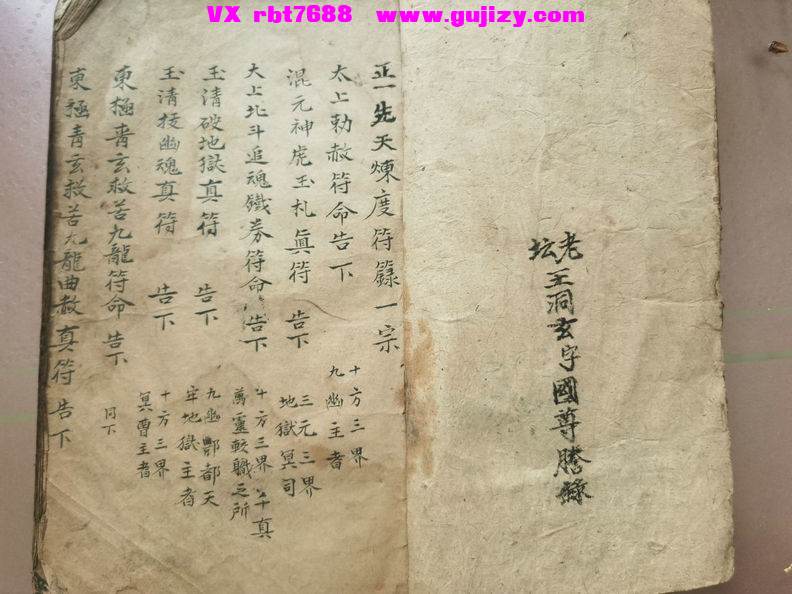 VX rbt7688 www.gujizy.com
老
坛
王洞玄字國尊謄錄
正一先天煉度符籙一宗
太上勅赦符命告下
十方三界
九幽主者
混元神虎玉札真符 告下
三元三界
地獄冥司
太上北斗追魂鐵券符命 告下
十方三界 十真
萬靈較職之所
玉清破地獄真符 告下
九幽酆都天
牢地獄主者
玉清拔幽魂真符 告下
十方三界
冥曹主者
東極青玄救苦九龍符命 告下
同下
東極青玄救苦九龍曲赦真符 告下